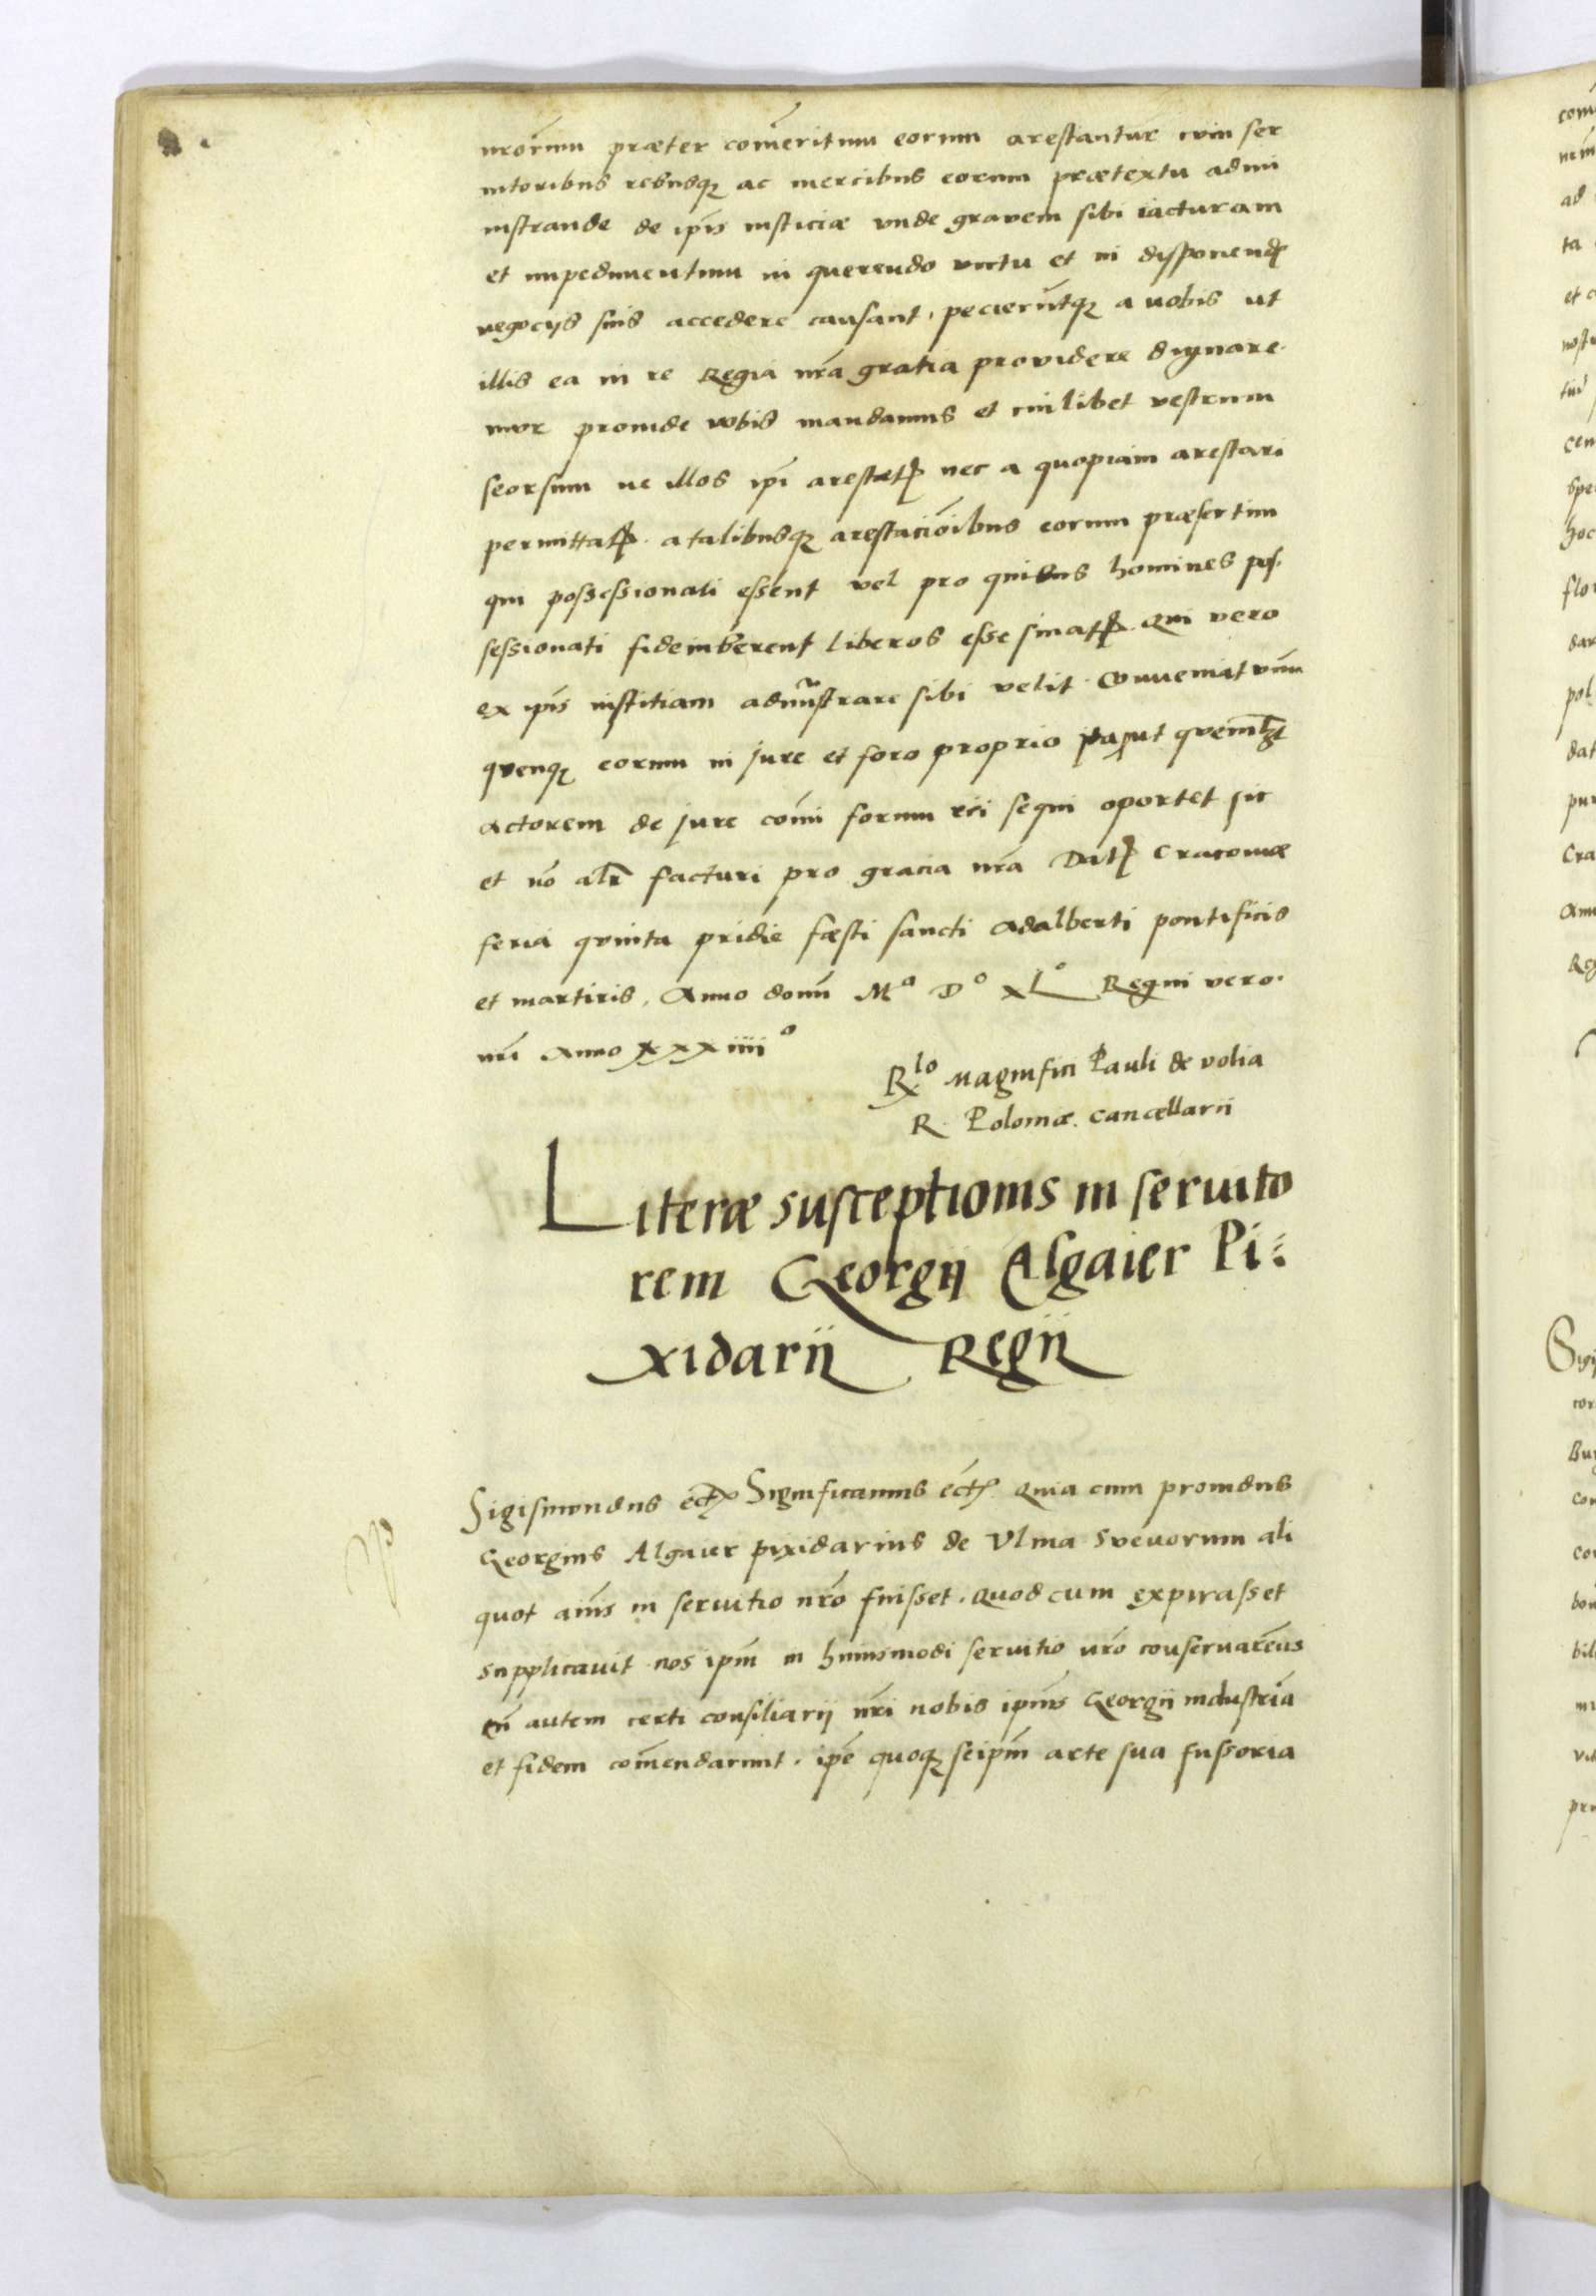 nrorum præter comeritum eorum arestantur cum ser
uitoribus rebusq ac mercibus eorum prætextu admi
nistrande de ipis iusticiæ unde gravem sibi iacturam
et impedimentum in querendo victu et in disponend
negocijs suis accedere causant, pecieruntq a nobis ut
illis ea in re Regia nra gratia providere dignare
mur proinde vobis mandamus et cuilibet vestrum
seorsum ne illos ipi arestet nec a quopiam arestari
permittat. a talibusq arestacioibus eorum præsertim
qui possessionati essent vel pro quibus homines pos
sessionati fideiuberent liberos esse sinat. Qui vero
ex ipis iustitiam administrare sibi velit. Conveniat unu
quenq eorum in jure et foro proprio put quemlt
actorem de jure comi forum rei sequi oportet sic
et no alr facturi pro gracia nra Dat Cracoviæ
feria quinta pridie fæsti sancti Adalberti pontificis
et martiris, Anno domi Mº Dº xLº Regni vero.
nri Anno xxxiiiiº
Rlo Magnifici Pauli de volia
R. Poloniæ. cancellarii
Literæ susceptionis in seruito
rem Georgij Algaier Pi=
xidarij Regij
Sigismondus ect Significamus ect. Quia cum providus
Georgius Algaier pixidarius de Ulma Svevorum ali
quot anis in seruitio nro fuisset. Quod cum expirasset
supplicavit nos ipm in huiusmodi seruitio nro conservaremus
cu autem certi consiliarij nri nobis ipius Georgii industria
et fidem comendarint. ipe quoq seipm arte sua fussoria